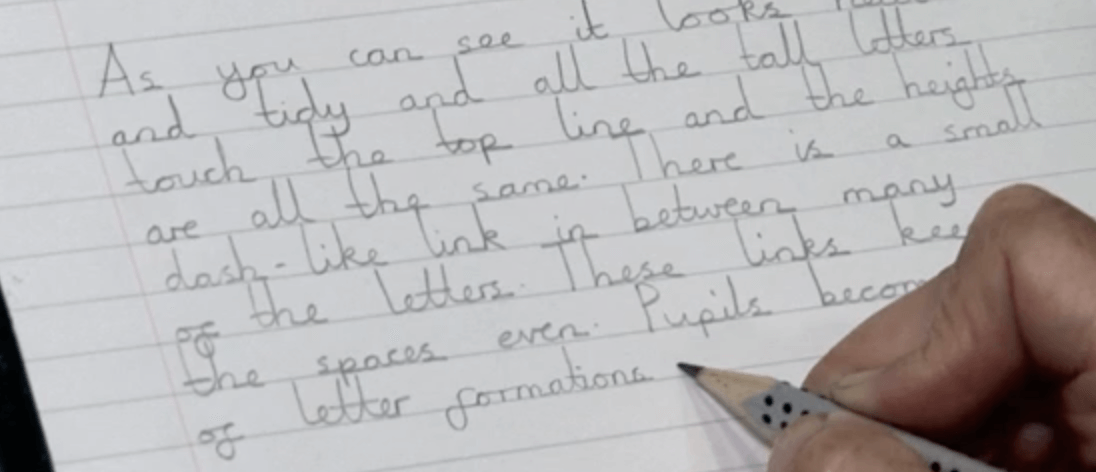 As you can see it looks
and tidy and all the tall letters
touch the top line and the heights
are all the same. There is a small
dash-like link in between many
of the letters. These links
the spaces even. Pupils
of letter formations